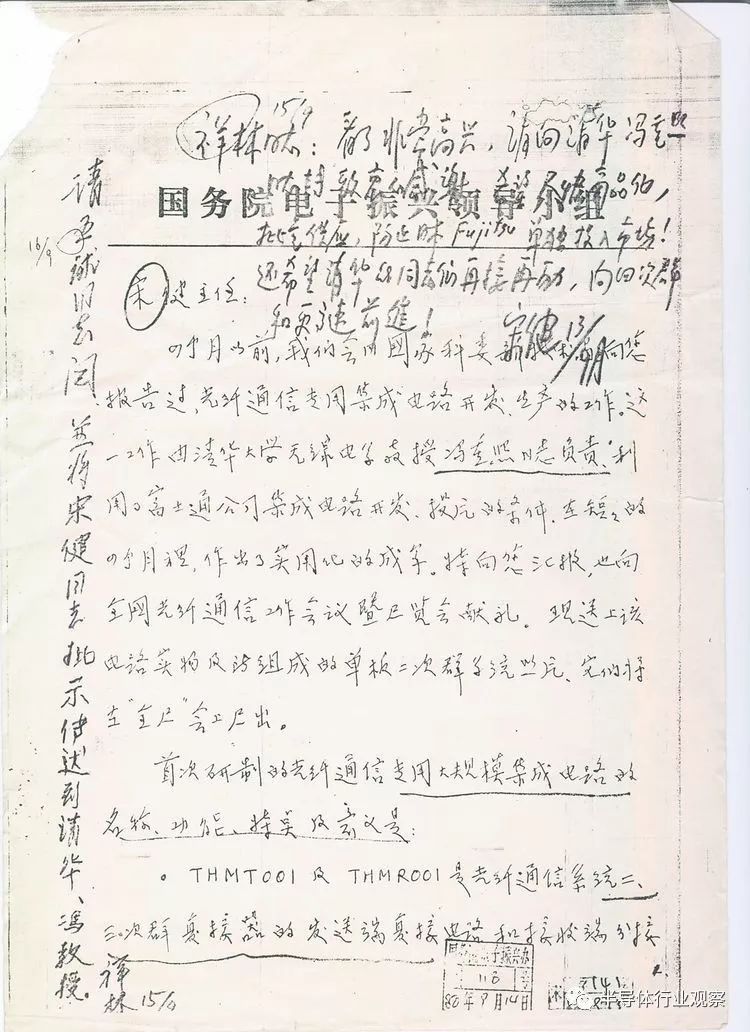 15/9
祥林同志：都非常高兴，请向清华冯重熙
同志致意和感谢。希望尽快商品化，
国务院电子振兴领导小组
批量供应，防止日本Fujitsu单独投入市场！
还希望清华的同志们再接再励，向四次群
和更高速前进！
宋健 15/9月
宋健主任：
四个月以前，我们会同国家科委新技术局向您
报告过，光纤通信专用集成电路开发、生产的工作。这
一工作由清华大学无线电系教授冯重熙同志负责，利
用了富士通公司集成电路开发、投片的条件，在短短的
四个月里，作出了实用化的成果。特向您汇报，也向
全国光纤通信工作会议暨展览会献礼。现送上该
电路实物及所组成的单板二次群系统照片、它们将
在“全展”会上展出。
首次研制的光纤通信专用大规模集成电路的
名称、功能、特点及意义是：
。THMT001及THMR001是光纤通信系统二、
三次群复接器的发送端复接电路和接收端分接
请
同志阅，并将宋健同志批示传达到清华、冯教授。
16/9
祥林
15/9
118
88年9月14日
半导体行业观察